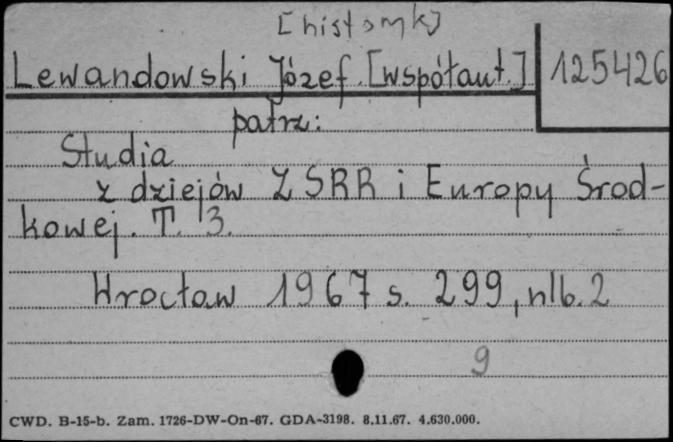 [historyk]
Lewandowski Józef. [współaut.] 125426
patrz:
Studia
z dziejów ZSRR i Europy Środ-
kowej. T. 3.
Wrocław 1967 s. 299, nlb. 2
9
CWD. B-15-b. Zam. 1726-DW-On-67. GDA-3198. 8.11.67. 4.630.000.